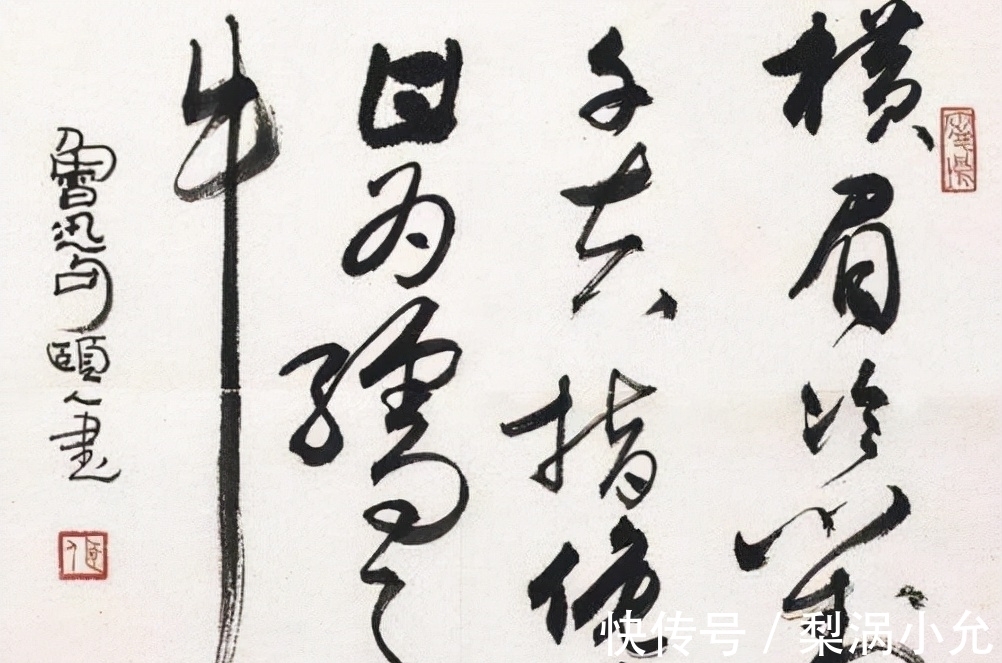 横眉冷對
千夫指俯
甘为孺子
牛
魯迅句頤人書
快传号 / 梨涡小允